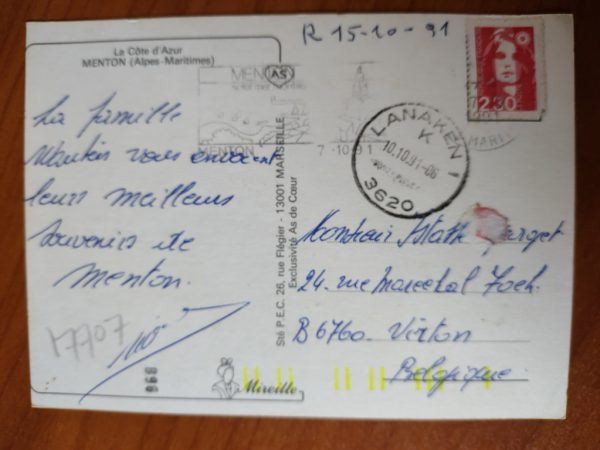 R 15-10-91
La Côte d'Azur
MENTON (Alpes-Maritimes)
MENTON
AS
MENTON
7 -10-91
2,30
LANAKEN 1
K
10.10.91-06
3620
La famille
vous envoient
leurs meilleurs
souvenirs de
menton.
17707
868
Mireille
Sté P.E.C. 26, rue Flégier - 13001 MARSEILLE
Exclusivité As de Cœur
Monsieur
24. rue Marechal Foch.
B 6760. Virton
Belgique